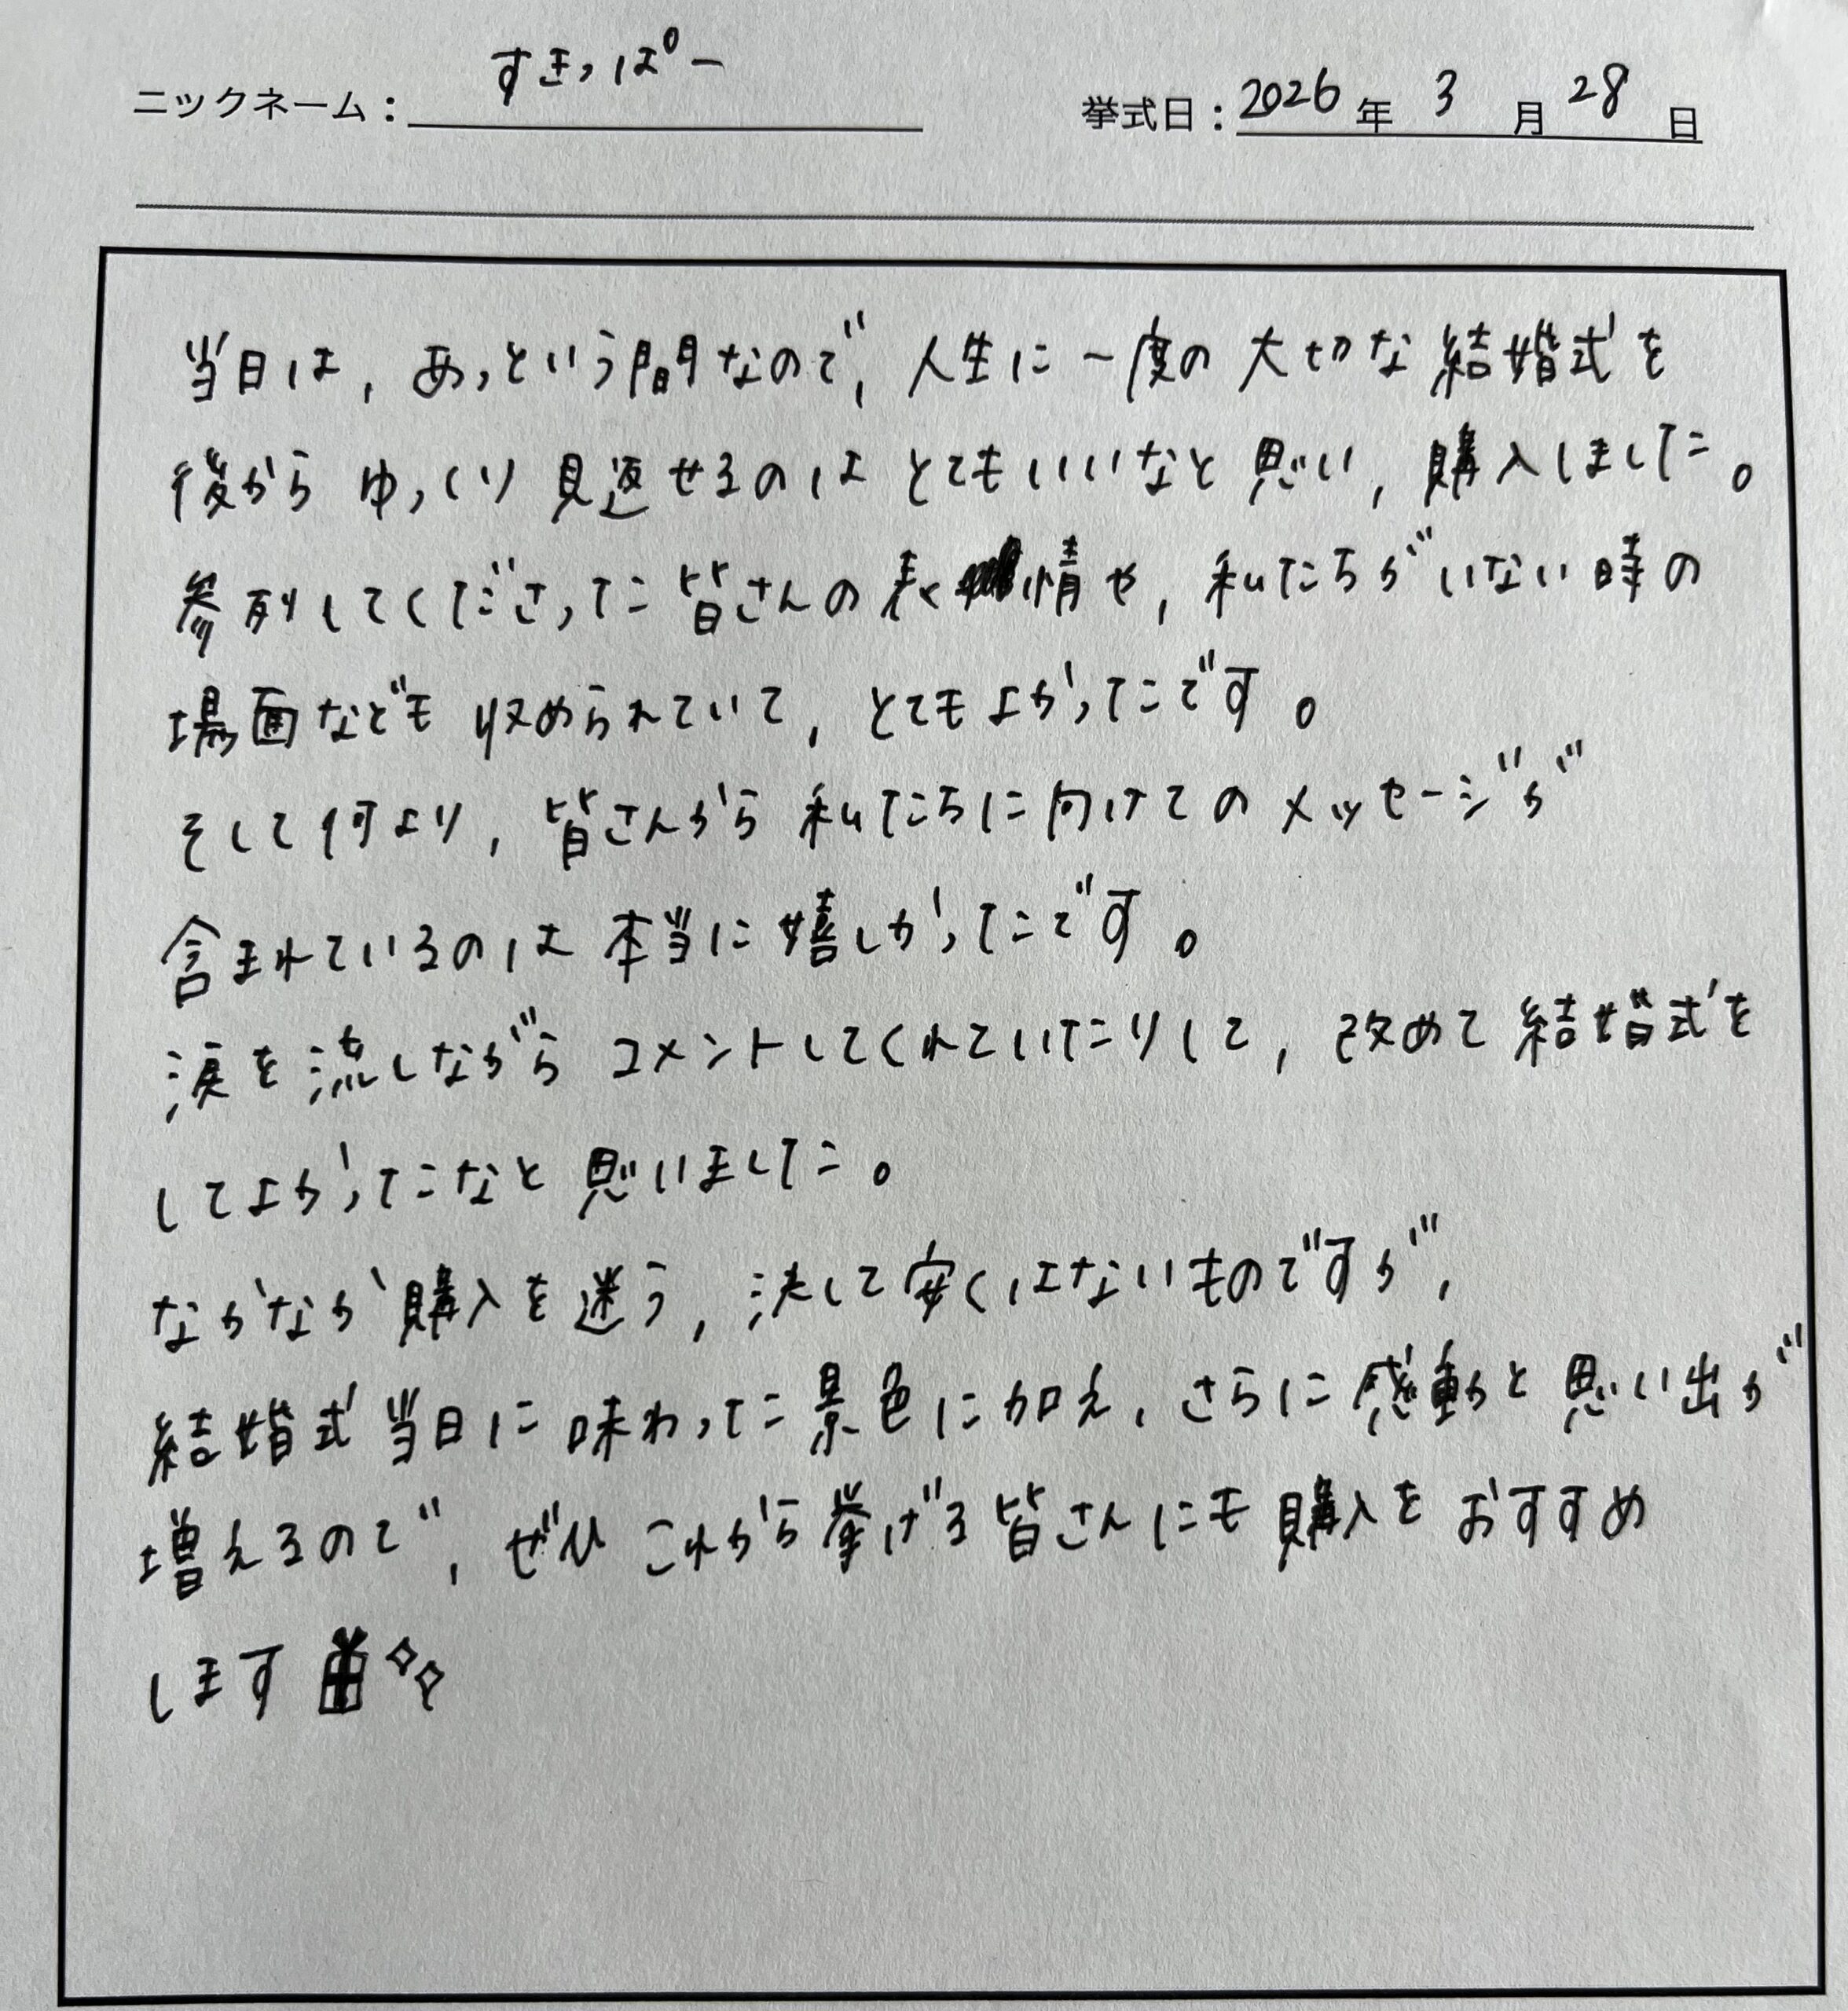 ニックネーム：すきっぱー
挙式日：2026年3月28日
当日は，あっという間なので，人生に一度の大切な結婚式を
後からゆっくり見返せるのはとてもいいなと思い，購入しました。
参列してくださった皆さんの表情や，私たちがいない時の
場面なども収められていて，とてもよかったです。
そして何より，皆さんから私たちに向けてのメッセージが
含まれているのは本当に嬉しかったです。
涙を流しながらコメントしてくれていたりして，改めて結婚式を
してよかったなと思いました。
なかなか購入を迷う，決して安くはないものですが，
結婚式当日に味わった景色に加え，さらに感動と思い出が
増えるので，ぜひこれから挙げる皆さんにも購入をおすすめ
します